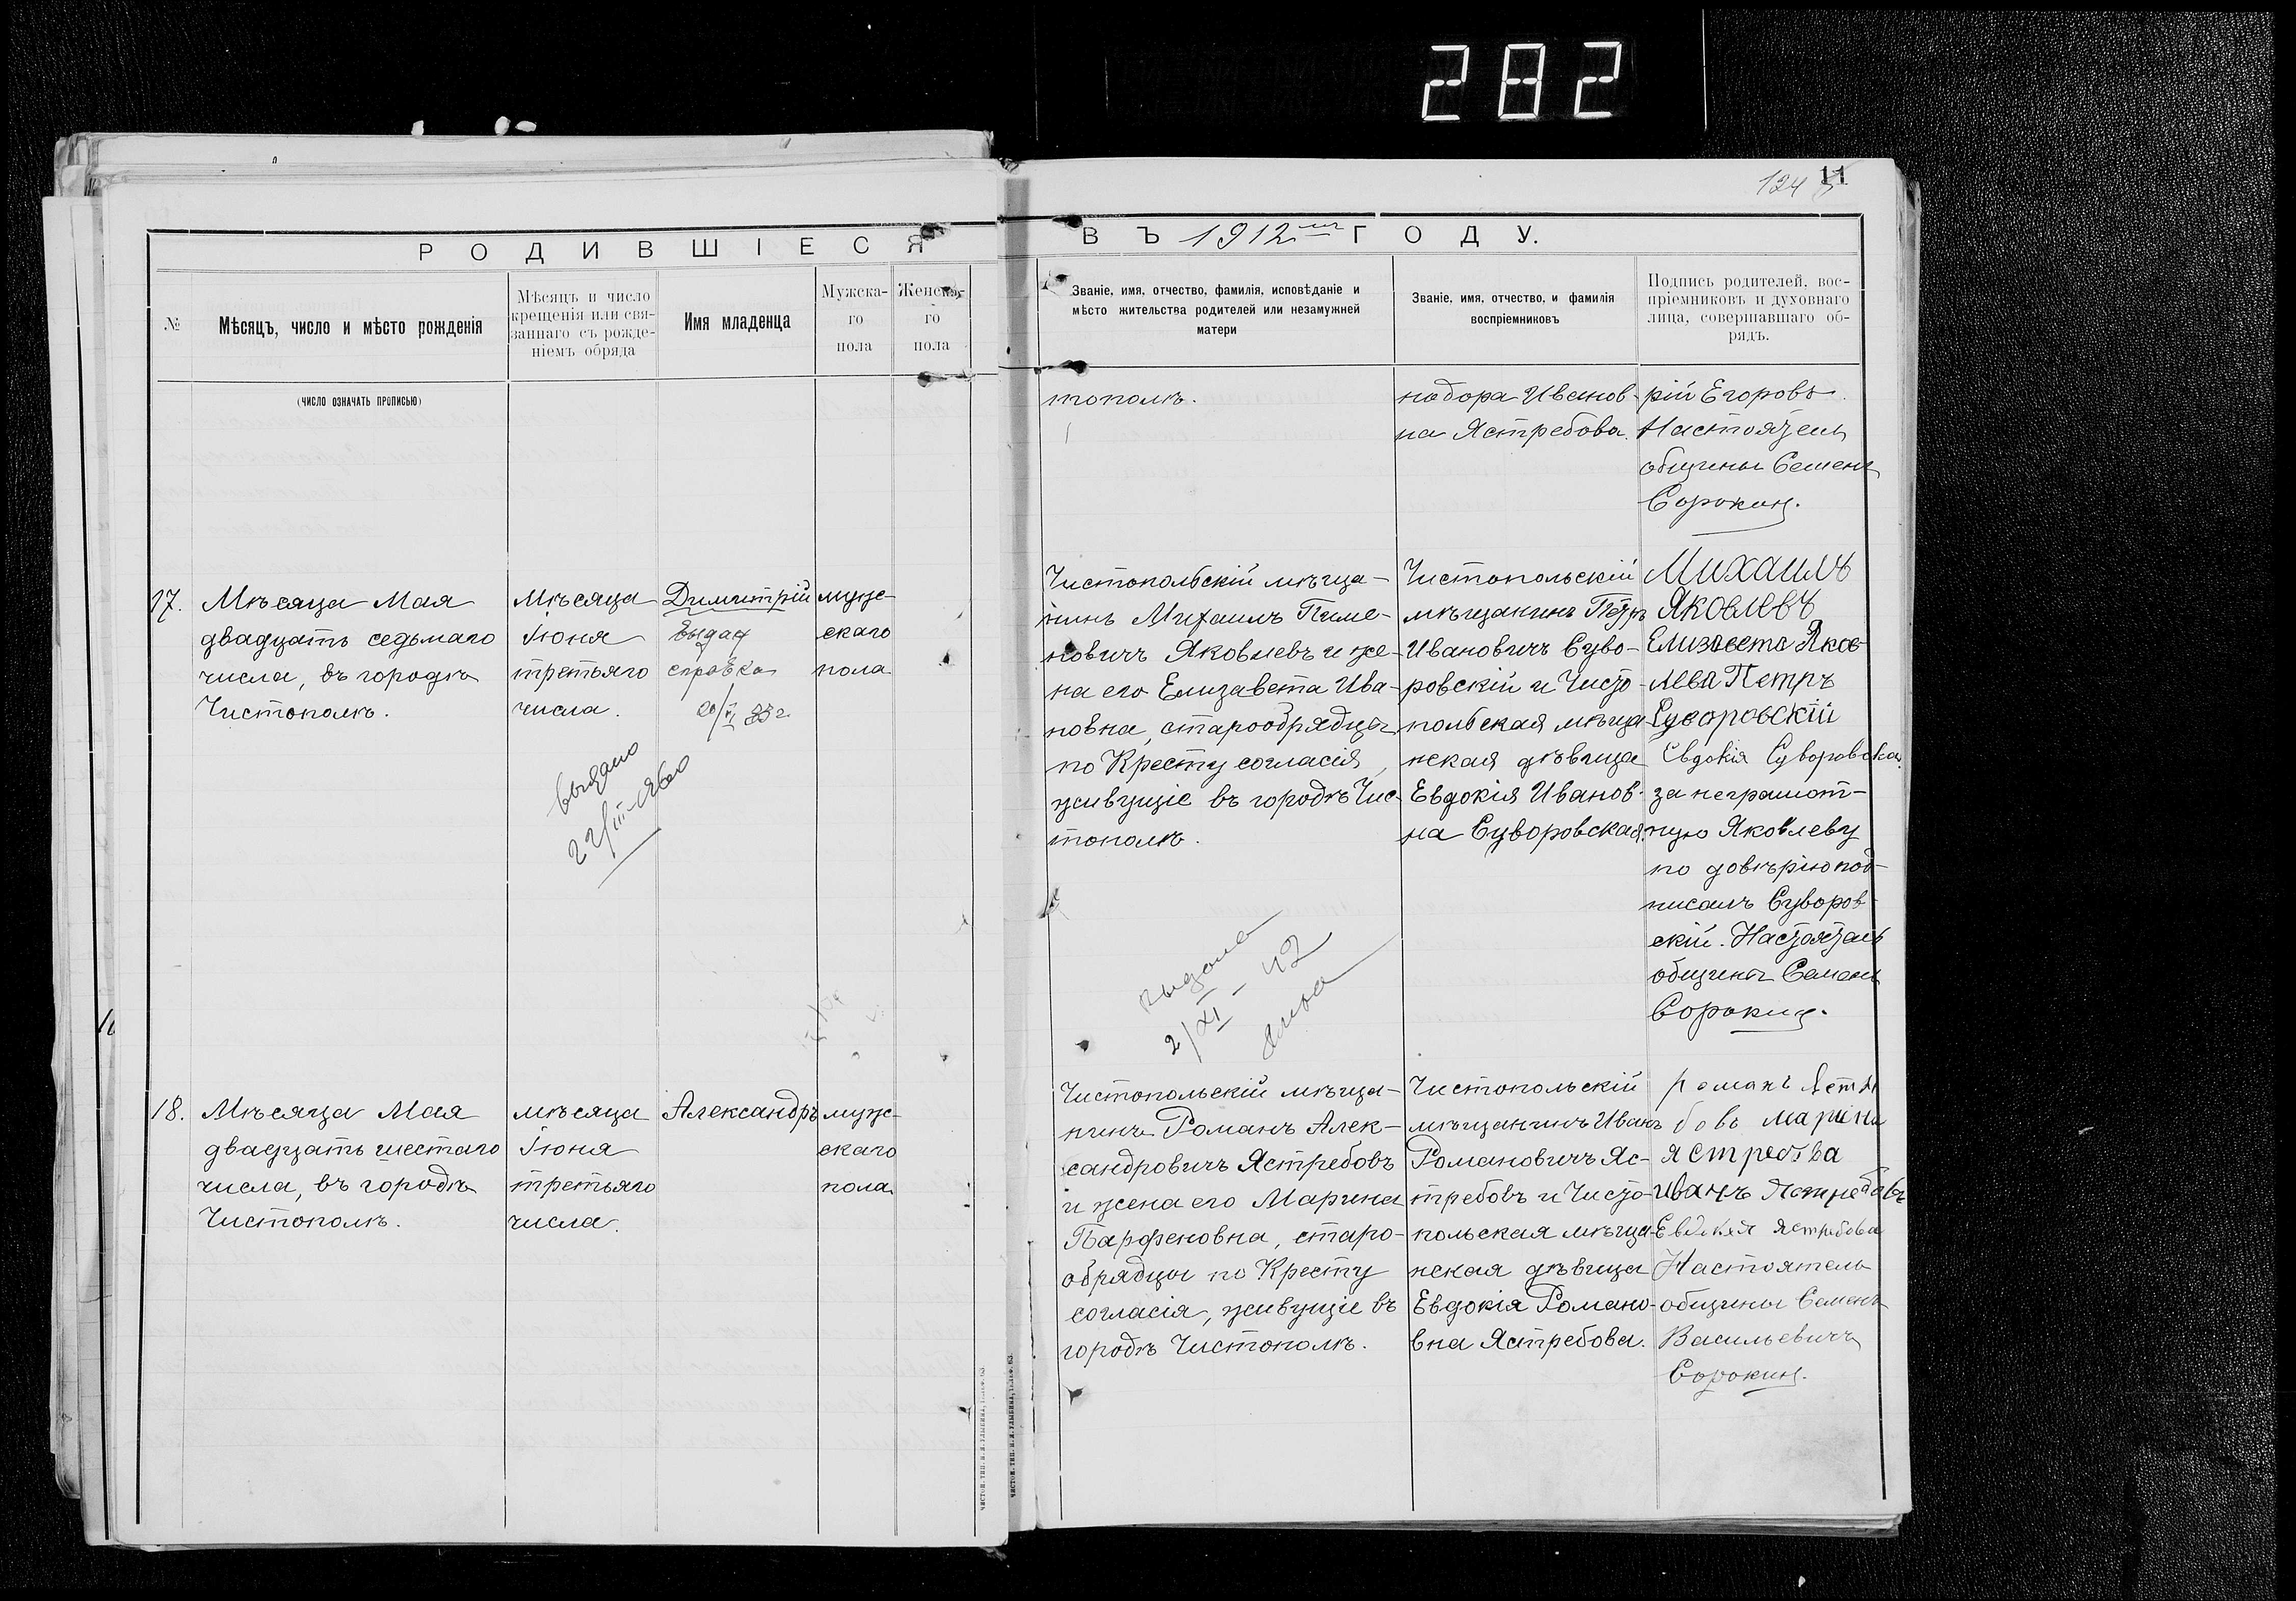 282
124
11
РОДИВШІЕСЯ
ВЪ 1912 ГОДУ.
№
Мѣсяцъ, число и мѣсто рожденія
Мѣсяцъ и число
крещенія или свя-
заннаго съ рожде-
ніемъ обряда
Имя младенца
Мужска-
го
пола
Женска-
го
пола
Званіе, имя, отчество, фамилія, исповѣданіе и
мѣсто жительства родителей или незамужней
матери
Званіе, имя, отчество, и фамилія
воспріемниковъ
Подпись родителей, вос-
пріемниковъ и духовнаго
лица, совершавшаго об-
рядъ.
(ЧИСЛО ОЗНАЧАТЬ ПРОПИСЬЮ)
тополѣ.
надора Иванов-
на Ястребова.
рій Егоровъ
Настоятель
общины Семенъ
Сорокинъ.
17.
Мѣсяца Мая
двадцать седьмаго
числа, въ городѣ
Чистополѣ.
Мѣсяца
Іюня
третьяго
числа.
Димитрій
выдан
справка
муже-
скаго
пола
выдано
Чистопольскій мѣща-
нинъ Михаилъ Пиме-
новичъ Яковлевъ и же-
на его Елизавета Ива-
новна, старообрядцы
по Кресту согласія,
живущіе въ городѣ Чис-
тополѣ.
Чистопольскій
мѣщанинъ Петръ
Ивановичъ Суво-
ровскій и Чисто-
польская мѣща-
нская дѣвица
Евдокія Иванов-
на Суворовская.
Михаилъ
Яковлевъ
Елизавета Яков-
лева Петръ
Суворовскій
Евдокія Суворовская
за неграмот-
ную Яковлеву
по довѣрію под-
писалъ Суворов-
скій. Настоятель
общины Семенъ
Сорокинъ.
выдана
2/XI - 42
18.
Мѣсяца Мая
двадцать шестаго
числа, въ городѣ
Чистополѣ.
мѣсяца
Іюня
третьяго
числа.
Александръ
муже-
скаго
пола
Чистопольскій мѣща-
нинъ Романъ Алек-
сандровичъ Ястребовъ
и жена его Марина
Парфеновна, старо-
обрядцы по Кресту
согласія, живущіе въ
городѣ Чистополѣ.
Чистопольскій
мѣщанинъ Иванъ
Романовичъ Яс-
требовъ и Чисто-
польская мѣща-
нская дѣвица
Евдокія Романо-
вна Ястребова.
Романъ
бовъ Марина
Ястребва
Иванъ Ястребовъ
Евдокея Ястребова
Настоятель
общины Семенъ
Васильевичъ
Сорокинъ.